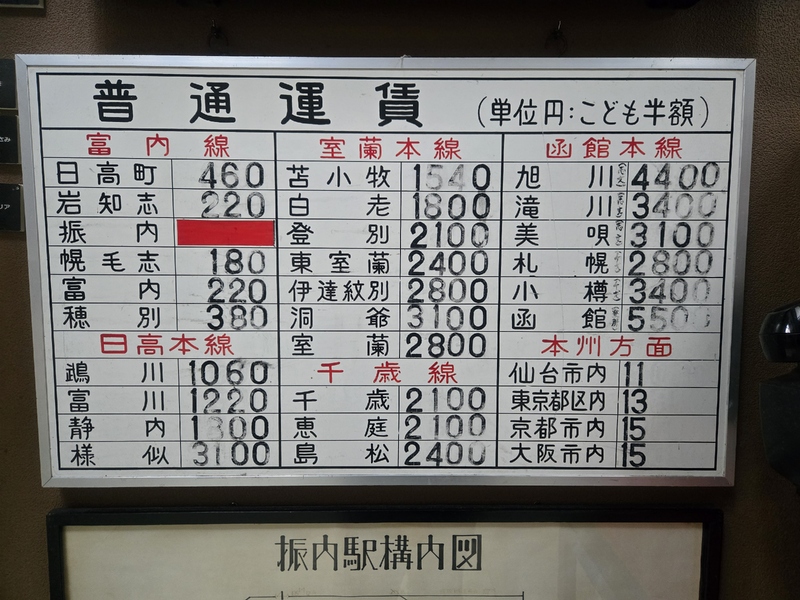 普通運賃 (単位円:こども半額)
富内線
日高町 460
岩知志 220
振内
幌毛志 180
富内 220
穂別 380
日高本線
鵡川 1060
富川 1220
静内 1800
様似 3100
室蘭本線
苫小牧 1540
白老 1800
登別 2100
東室蘭 2400
伊達紋別 2800
洞爺 3100
室蘭 2800
千歳線
千歳 2100
恵庭 2100
島松 2400
函館本線
旭川 4400
滝川 3400
美唄 3100
札幌 2800
小樽 3400
函館 5500
本州方面
仙台市内 11
東京都区内 13
京都市内 15
大阪市内 15
振内駅構内図